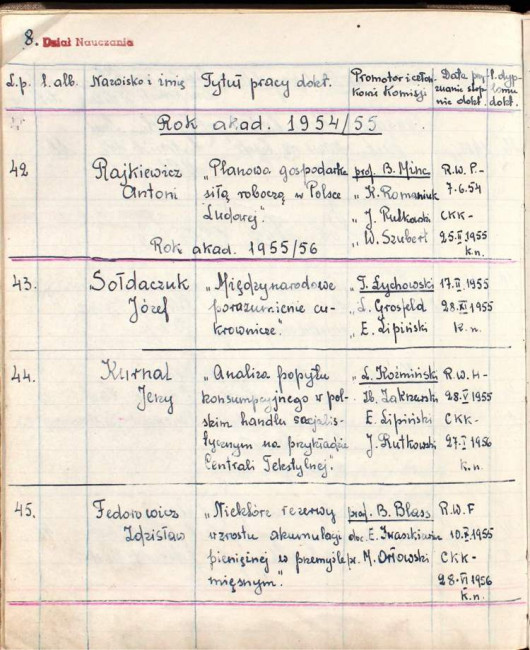 8. Dział Nauczania
L.p. l. alb. Nazwisko i imię Tytuł pracy dokt. Promotor i człon- Data przy l. dyp-
kowie Komisji znanie stop lomu
nie dokt. dokt.
Rok akad. 1954/55
42 Rajkiewicz „Planowa gospodarka prof. B. Minc R.W.P.-
Antoni siłą roboczą w Polsce „ K. Romaniuk 7.6.54
Ludowej". „ J. Rutkowski CKK-
Rok akad. 1955/56 „ W. Szubert 25.II 1955
k.n.
43. Sołdaczuk „Międzynarodowe „ J. Lychowski 17.II.1955
Józef porozumienie cu- „ L. Grosfeld 28.XI 1955
krownicze". „ E. Lipiński k.n.
44. Kurnal „Analiza popytu „ L. Koźmiński R.W.H-
Jerzy konsumpcyjnego w pol- Zakrzewski 28.V 1955
skim handlu socjalis- E. Lipiński CKK-
tycznym na przykładzie J. Rutkowski 27.I 1956
Centrali Tekstylnej". k.n.
45. Fedorowicz „Niektóre rezerwy prof. B. Blass R.W.F
Zdzisław wzrostu akumulacji doc. E. Iwaszkiewicz 10.X.1955
pieniężnej w przemyśle pr. M. Orłowski CKK-
mięsnym". 28.VI 1956
k.n.